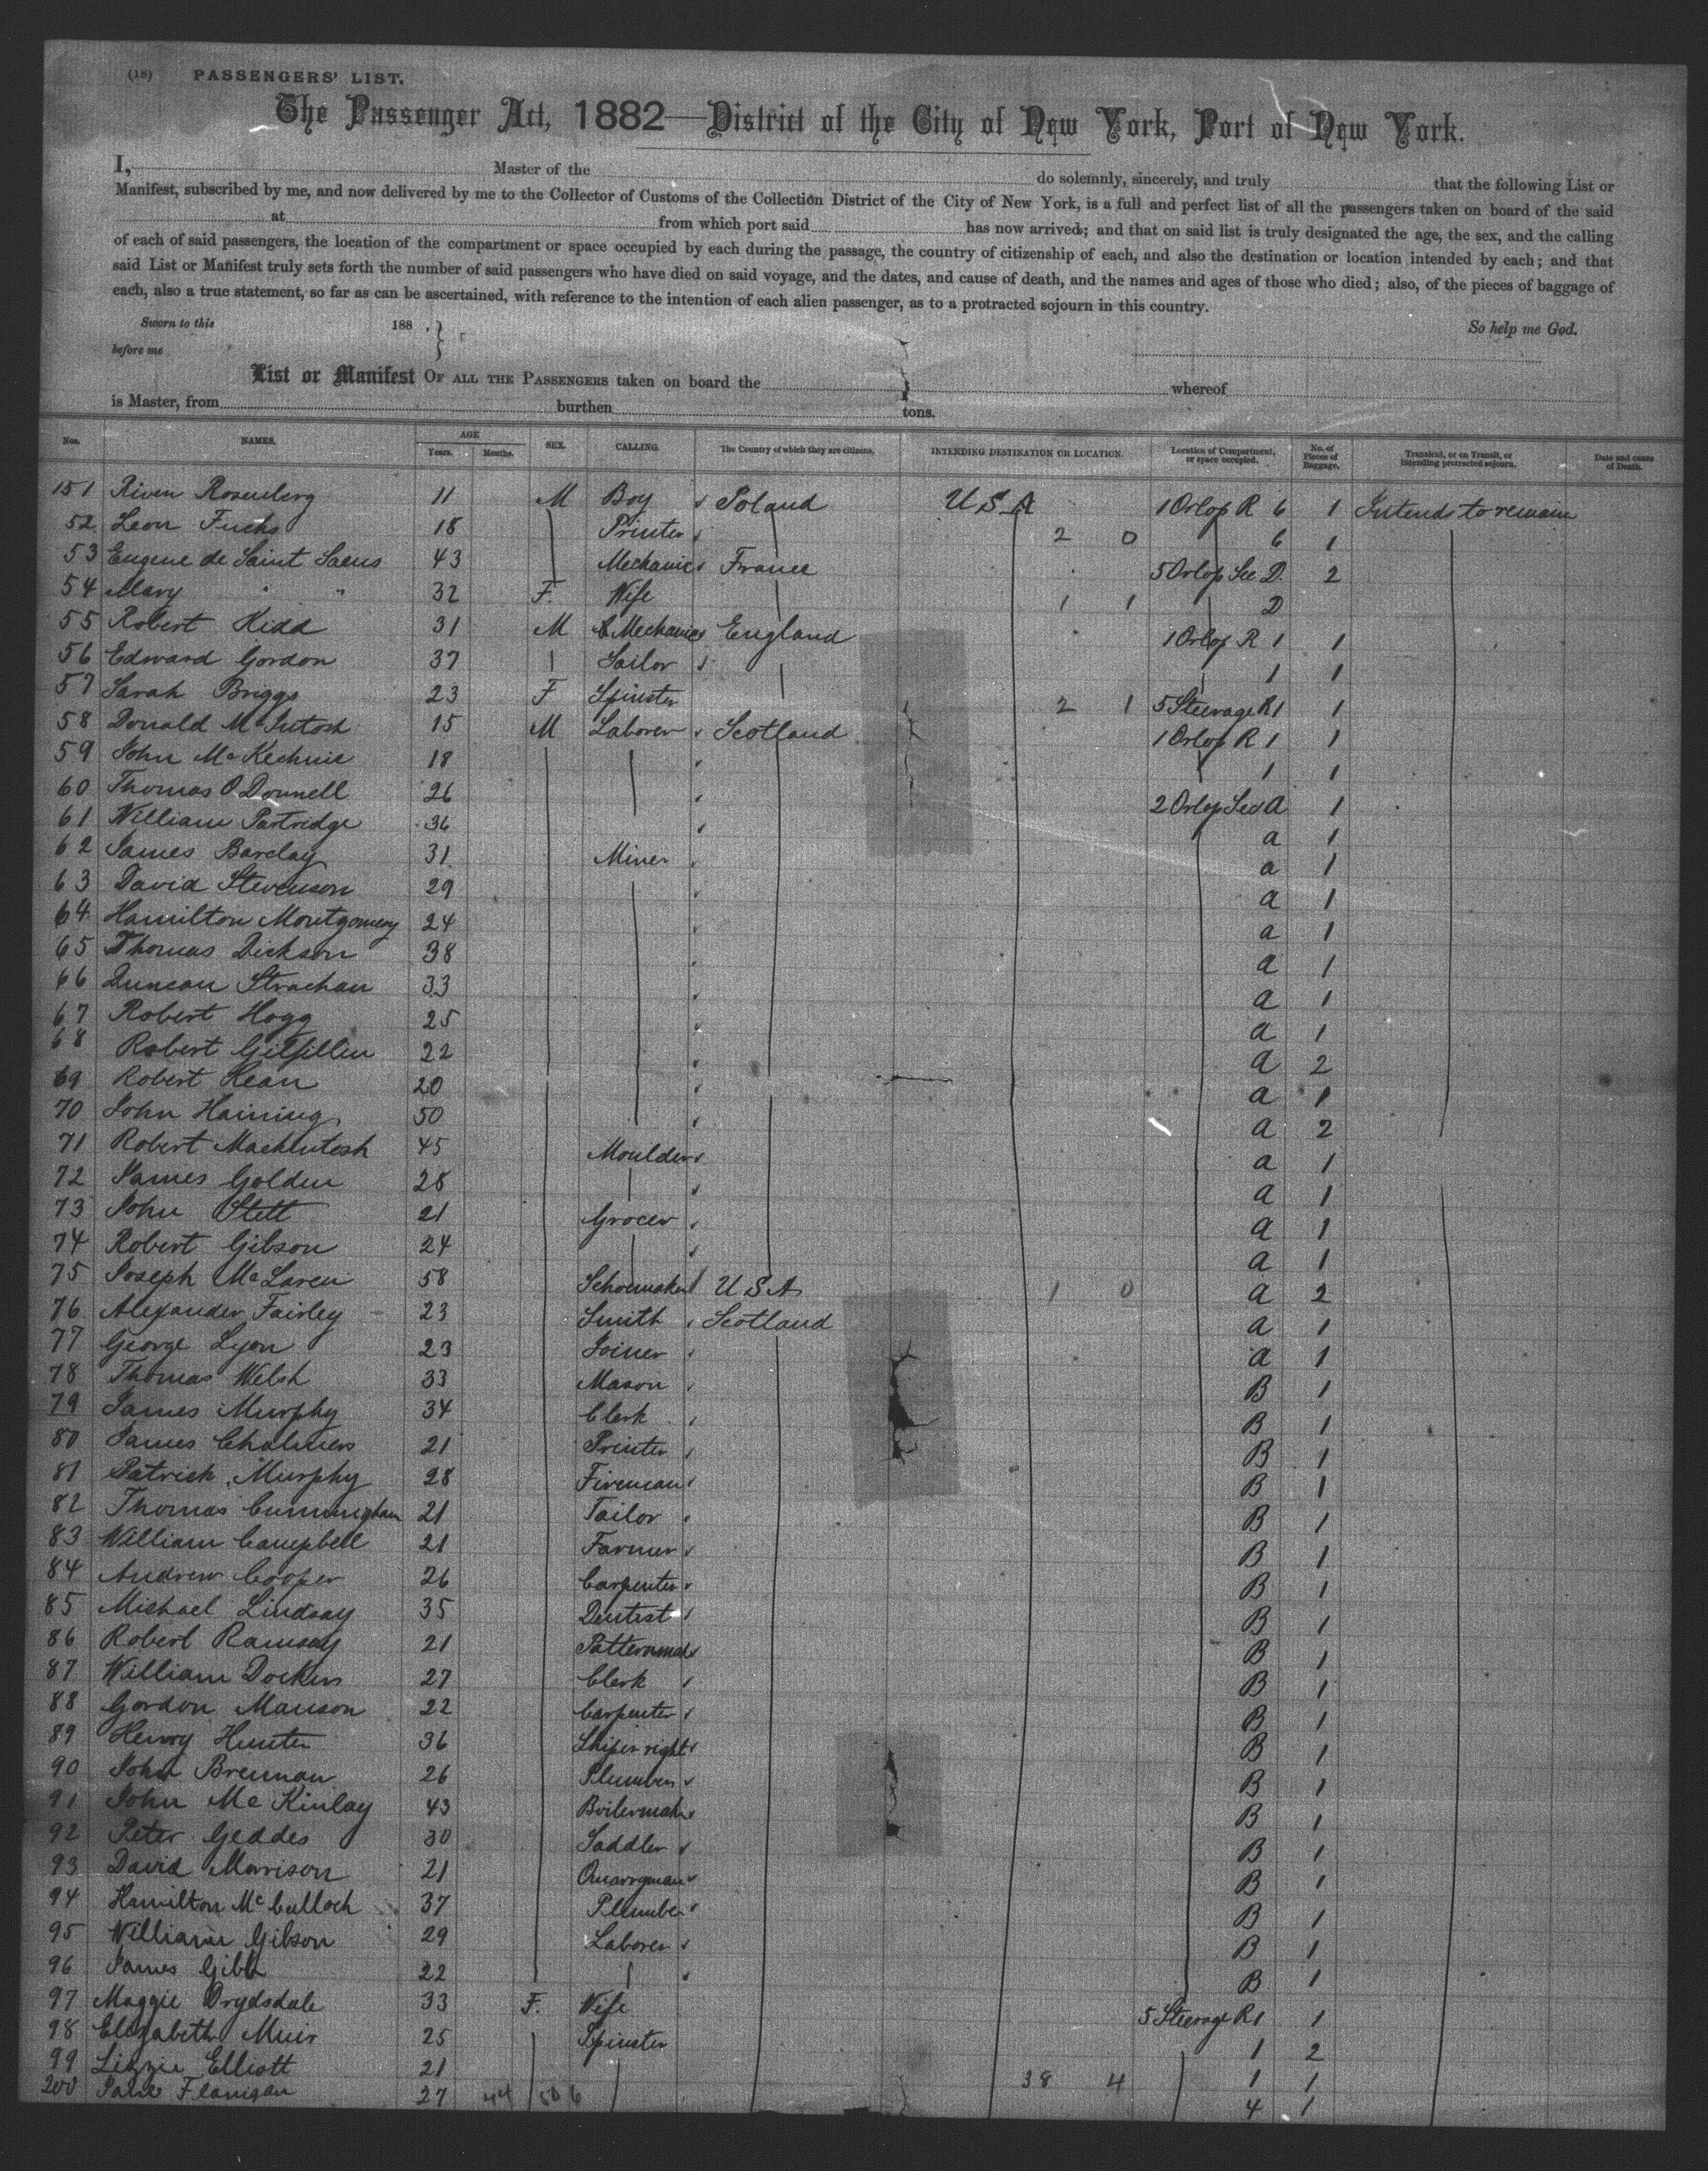 (18) PASSENGERS' LIST.
The Passenger Act, 1882—District of the City of New York, Port of New York.
I, Master of the do solemnly, sincerely, and truly that the following List or
Manifest, subscribed by me, and now delivered by me to the Collector of Customs of the Collection District of the City of New York, is a full and perfect list of all the passengers taken on board of the said
at from which port said has now arrived; and that on said list is truly designated the age, the sex, and the calling
of each of said passengers, the location of the compartment or space occupied by each during the passage, the country of citizenship of each, and also the destination or location intended by each; and that
said List or Manifest truly sets forth the number of said passengers who have died on said voyage, and the dates, and cause of death, and the names and ages of those who died; also, of the pieces of baggage of
each, also a true statement, so far as can be ascertained, with reference to the intention of each alien passenger, as to a protracted sojourn in this country.
Sworn to this 188 . So help me God.
before me
List or Manifest OF ALL THE PASSENGERS taken on board the whereof
is Master, from burthen tons.
Nos. NAMES. AGE Years. Months. SEX. CALLING. The Country of which they are citizens. INTENDING DESTINATION OR LOCATION. Location of Compartment, or space occupied. No. of Pieces of Baggage. Transient, or on Transit, or intending protracted sojourn. Date and cause of Death.
151 Riven Rosenberg 11 M Boy Poland U.S.A 1 Orlop R 6 1 Intends to remain
52 Leon Fuchs 18 Printer 2 0 6 1
53 Eugene de Saint Saens 43 Mechanic France 5 Orlop Sec D. 2
54 Mary " " 32 F. Wife 1 1 D
55 Robert Kidd 31 M Mechanic England 1 Orlop R 1 1
56 Edward Gordon 37 Sailor 1 1
57 Sarah Briggs 23 F Spinster 2 1 5 Steerage R1 1
58 Donald McIntosh 15 M Laborer Scotland 1 Orlop R 1 1
59 John McKechnie 18 1 1
60 Thomas O'Donnell 26 2 Orlop Sec A 1
61 William Partridge 36 a 1
62 James Barclay 31 Miner a 1
63 David Stevenson 29 a 1
64 Hamilton Montgomery 24 a 1
65 Thomas Dickson 38 a 1
66 Duncan Strachan 33 a 1
67 Robert Hogg 25 a 1
68 Robert Gilfillin 22 a 2
69 Robert Kean 20 a 1
70 John Haining 50 a 2
71 Robert MacKintosh 45 Moulder a 1
72 James Golden 28 a 1
73 John Stett 21 Grocer a 1
74 Robert Gibson 24 a 1
75 Joseph McLaren 58 Schoemaker U.S.A 1 0 a 2
76 Alexander Fairley 23 Smith Scotland a 1
77 George Lyon 23 Joiner a 1
78 Thomas Welsh 33 Mason B 1
79 James Murphy 34 Clerk B 1
80 James Chalmers 21 Printer B 1
81 Patrick Murphy 28 Fireman B 1
82 Thomas Cunningham 21 Tailor B 1
83 William Campbell 21 Farmer B 1
84 Andrew Cooper 26 Carpenter B 1
85 Michael Lindsay 35 Dentist B 1
86 Robert Ramsay 21 Patternmak B 1
87 William Docken 27 Clerk B 1
88 Gordon Manson 22 Carpenter B 1
89 Henry Hunter 36 Shipwright B 1
90 John Brennan 26 Plumber B 1
91 John McKinlay 43 Boilermaker B 1
92 Peter Geddes 30 Saddler B 1
93 David Morrison 21 Quarryman B 1
94 Hamilton McCulloch 37 Plumber B 1
95 William Gibson 29 Laborer B 1
96 James Gibb 22 B 1
97 Maggie Drydsdale 33 F. Wife 5 Steerage R1 1
98 Elizabeth Muir 25 Spinster 1 2
99 Lizzie Elliott 21 38 4 1 1
200 Jane Flanigan 27 44 6 4 1